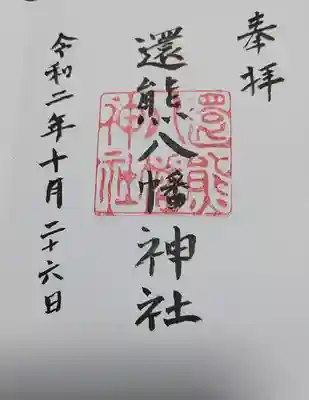 奉拝
還熊八幡神社
還熊八幡神社
令和二年十月二十六日